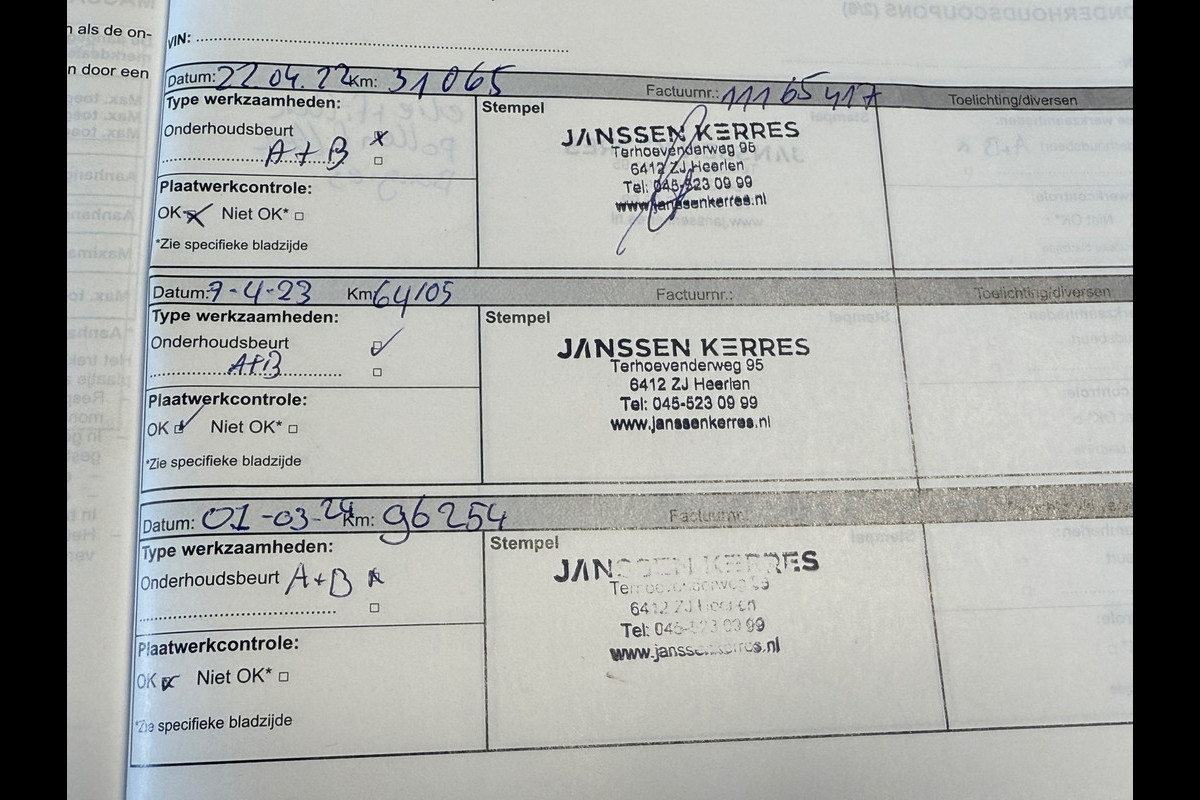 n als de on-
n door een
VIN:
Datum: 22.04.22 Km: 31065 Factuurnr.: 11165417 Toelichting/diversen
Type werkzaamheden:
Onderhoudsbeurt
A+B
Plaatwerkcontrole:
OK Niet OK*
*Zie specifieke bladzijde
Stempel
JANSSEN KERRES
Terhoevenderweg 95
6412 ZJ Heerlen
Tel: 045-523 09 99
www.janssenkerres.nl
Datum: 7-4-23 Km 64105 Factuurnr.: Toelichting/diversen
Type werkzaamheden:
Onderhoudsbeurt
A+B
Plaatwerkcontrole:
OK Niet OK*
*Zie specifieke bladzijde
Stempel
JANSSEN KERRES
Terhoevenderweg 95
6412 ZJ Heerlen
Tel: 045-523 09 99
www.janssenkerres.nl
Datum: 01-03-24 Km: 96254 Factuurnr.
Type werkzaamheden:
Onderhoudsbeurt A+B
Plaatwerkcontrole:
OK Niet OK*
*Zie specifieke bladzijde
Stempel
JANSSEN KERRES
Terhoevenderweg 95
6412 ZJ Heerlen
Tel: 045-523 09 99
www.janssenkerres.nl